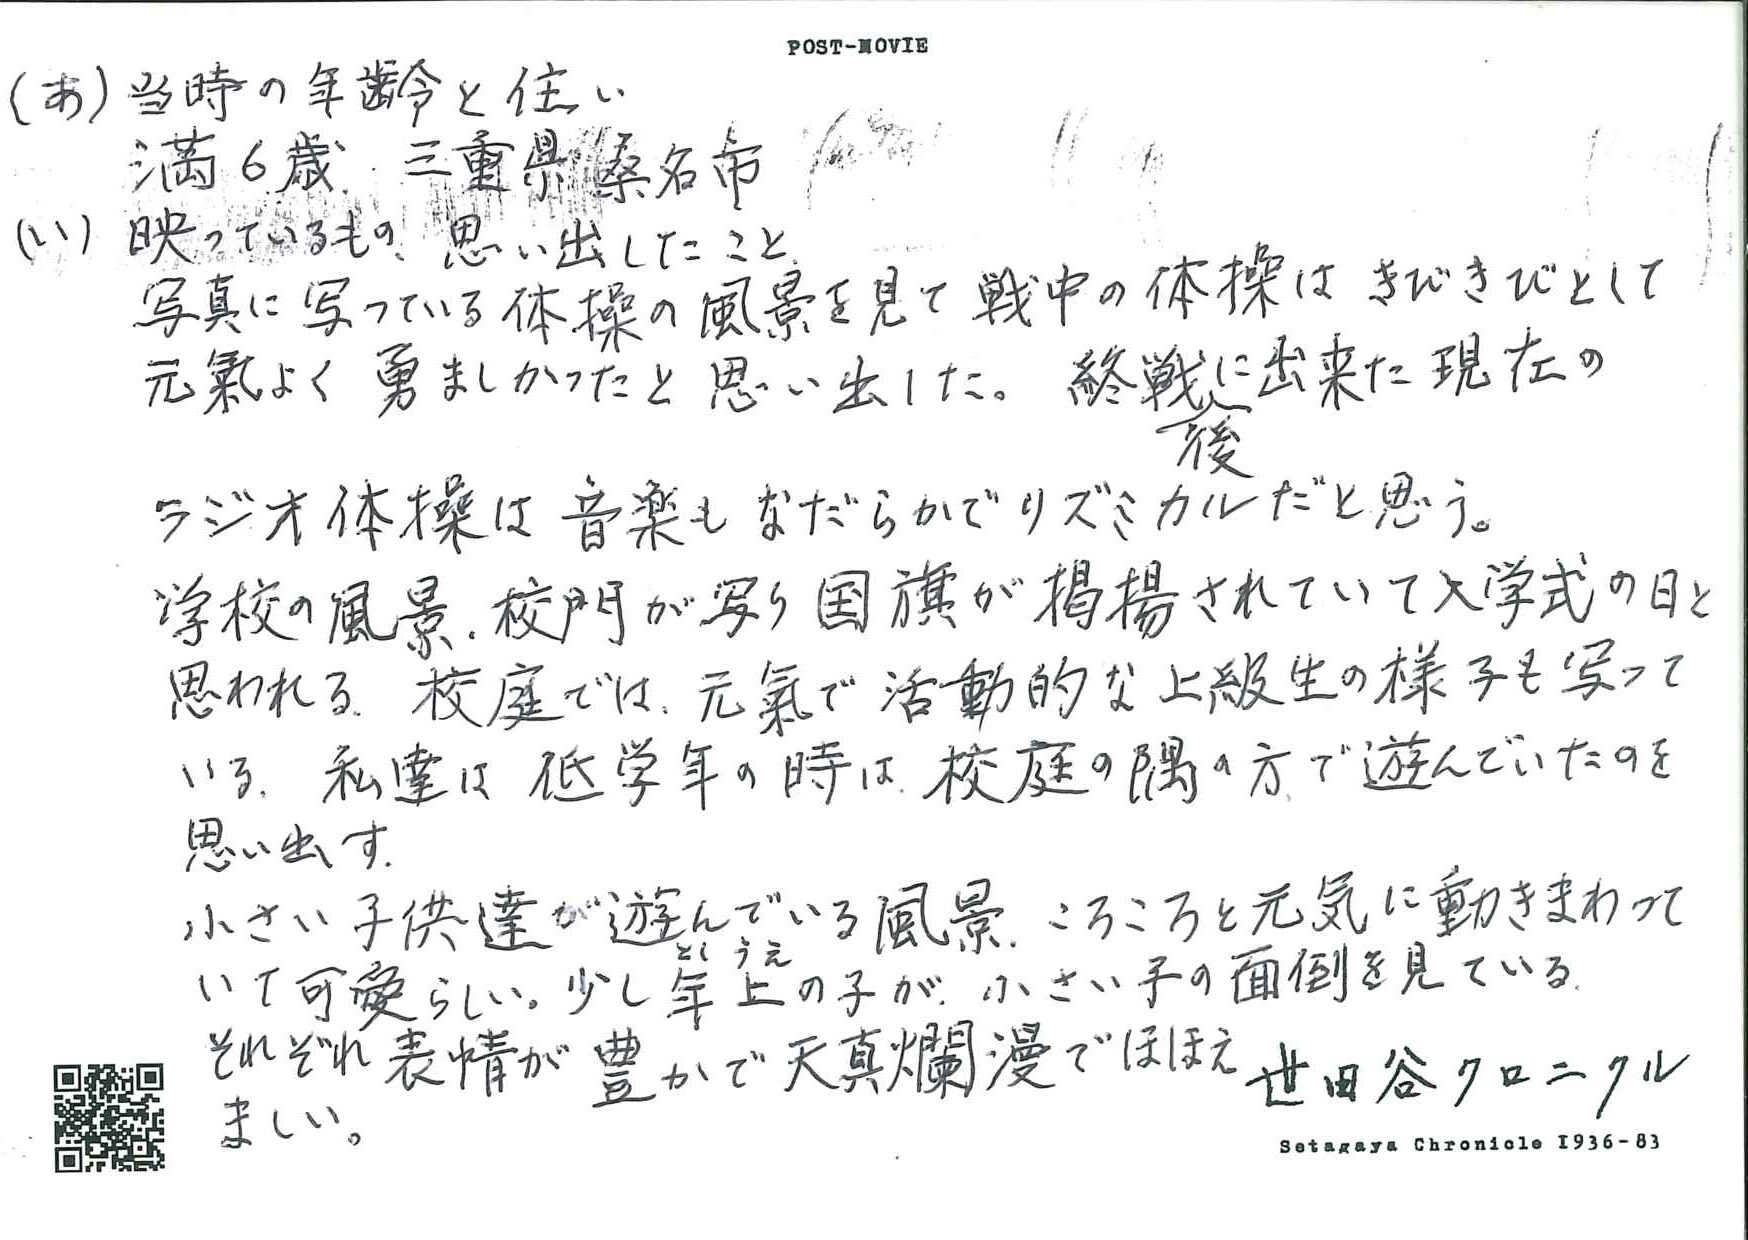 POST-MOVIE
(あ)当時の年齢と住い
満6歳 三重県桑名市
(い) 映っているもの、思い出したこと、
写真に写っている体操の風景を見て戦中の体操はきびきびとして
元氣よく勇ましかったと思い出した。終戦後に出来た現在の
ラジオ体操は音楽もなだらかでリズミカルだと思う。
学校の風景、校門が写り国旗が掲揚されていて入学式の日と
思われる、校庭では、元氣で活動的な上級生の様子も写って
いる、私達は低学年の時は、校庭の隅の方で遊んでいたのを
思い出す、
小さい子供達が遊んでいる風景、ころころと元気に動きまわって
いて可愛らしい。少し年上の子が、小さい子の面倒を見ている、
とし うえ
それぞれ表情が豊かで天真爛漫でほほえ
ましい。
世田谷クロニクル
Setagaya Chronicle 1936-83